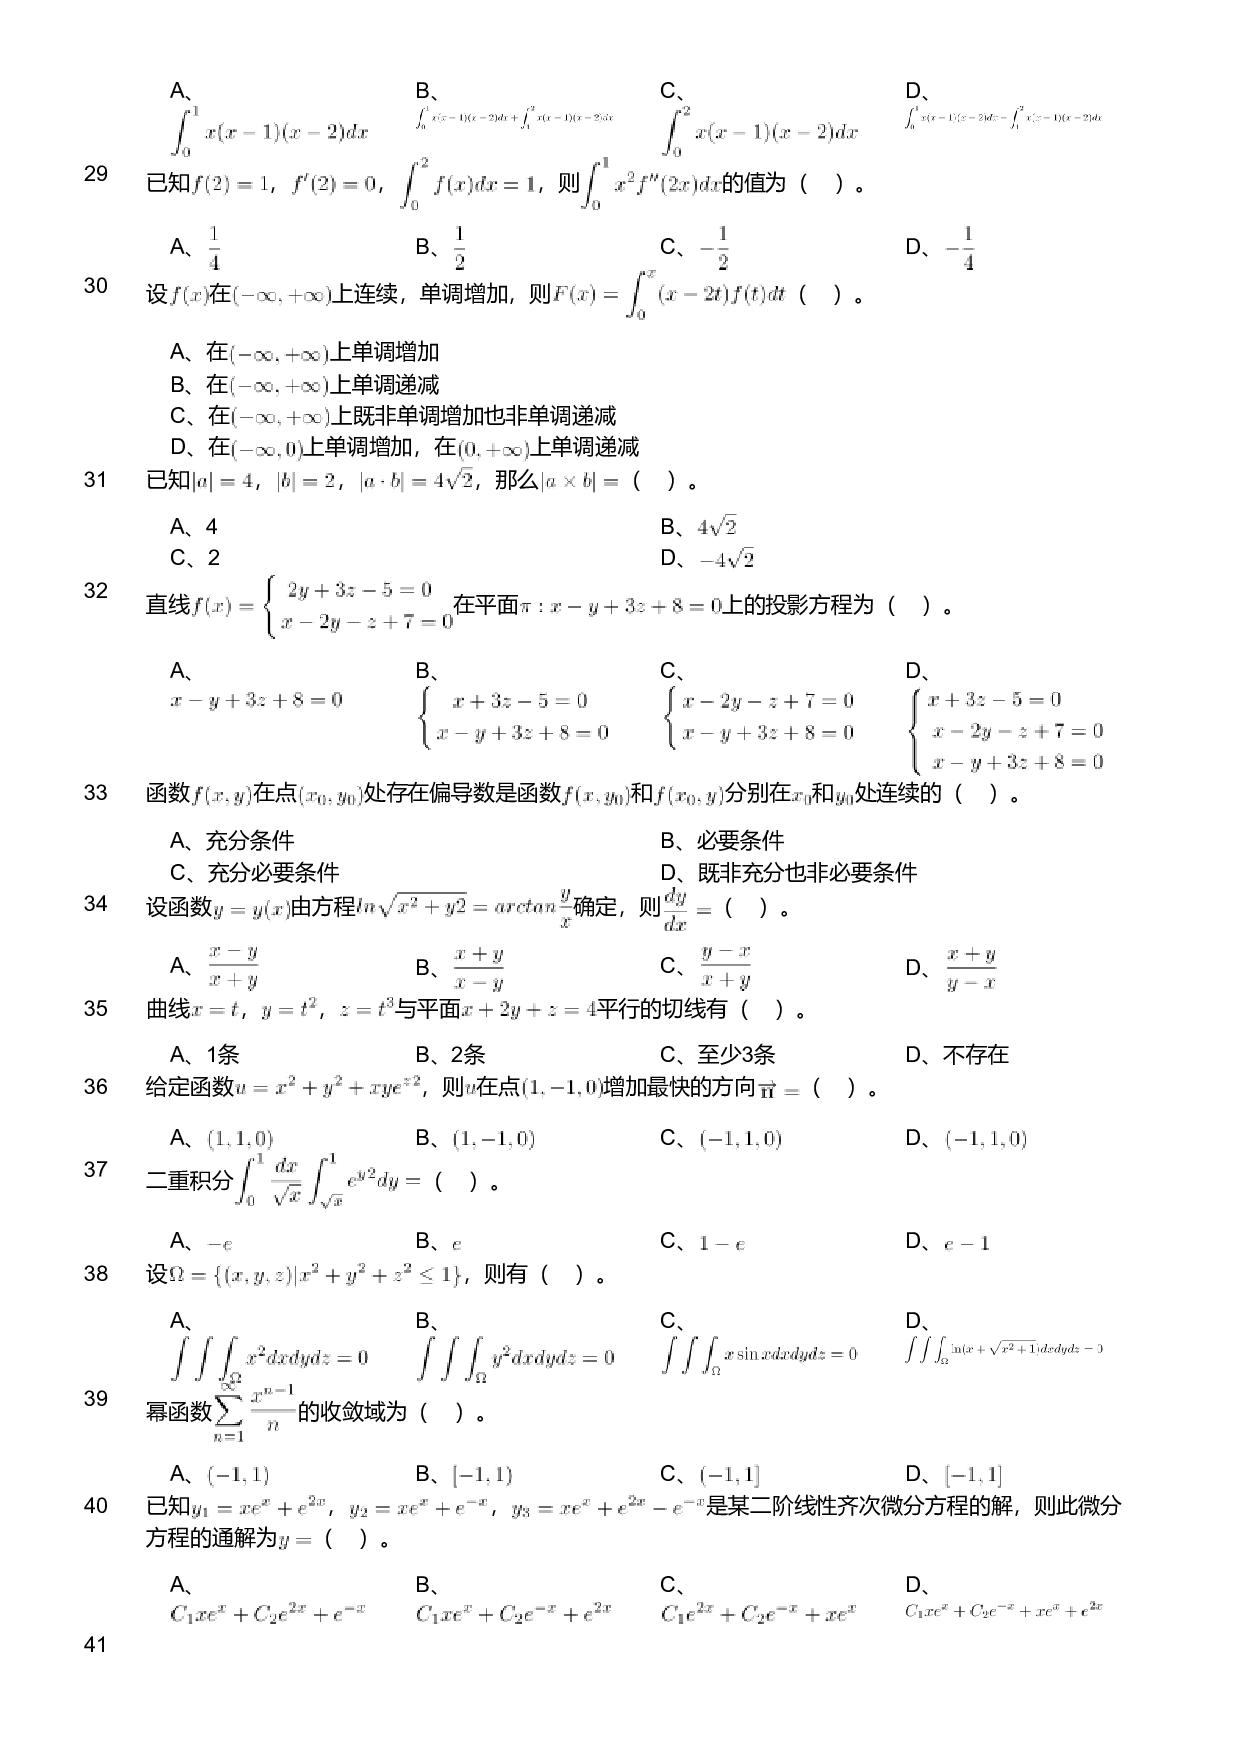 A、 B、 C、 D、
∫_0^1 x(x − 1)(x − 2)dx ∫_0^1 x(x − 1)(x − 2)dx + ∫_1^2 x(x − 1)(x − 2)dx ∫_0^2 x(x − 1)(x − 2)dx ∫_0^1 x(x − 1)(x − 2)dx − ∫_1^2 x(x − 1)(x − 2)dx
29 已知f(2) = 1，f′(2) = 0，∫_0^2 f(x)dx = 1，则∫_0^1 x²f″(2x)dx的值为（ ）。
A、1/4 B、1/2 C、−1/2 D、−1/4
30 设f(x)在(−∞, +∞)上连续，单调增加，则F(x) = ∫_0^x (x − 2t)f(t)dt（ ）。
A、在(−∞, +∞)上单调增加
B、在(−∞, +∞)上单调递减
C、在(−∞, +∞)上既非单调增加也非单调递减
D、在(−∞, 0)上单调增加，在(0, +∞)上单调递减
31 已知|a| = 4，|b| = 2，|a · b| = 4√2，那么|a × b| =（ ）。
A、4 B、4√2
C、2 D、−4√2
32 直线f(x) = { 2y + 3z − 5 = 0 x − 2y − z + 7 = 0 在平面π : x − y + 3z + 8 = 0上的投影方程为（ ）。
A、 B、 C、 D、
x − y + 3z + 8 = 0 { x + 3z − 5 = 0 x − y + 3z + 8 = 0 { x − 2y − z + 7 = 0 x − y + 3z + 8 = 0 { x + 3z − 5 = 0 x − 2y − z + 7 = 0 x − y + 3z + 8 = 0
33 函数f(x, y)在点(x₀, y₀)处存在偏导数是函数f(x, y₀)和f(x₀, y)分别在x₀和y₀处连续的（ ）。
A、充分条件 B、必要条件
C、充分必要条件 D、既非充分也非必要条件
34 设函数y = y(x)由方程ln√(x² + y2) = arctan y/x确定，则dy/dx =（ ）。
A、(x − y)/(x + y) B、(x + y)/(x − y) C、(y − x)/(x + y) D、(x + y)/(y − x)
35 曲线x = t，y = t²，z = t³与平面x + 2y + z = 4平行的切线有（ ）。
A、1条 B、2条 C、至少3条 D、不存在
36 给定函数u = x² + y² + xye^{z2}，则u在点(1, −1, 0)增加最快的方向n⃗ =（ ）。
A、(1, 1, 0) B、(1, −1, 0) C、(−1, 1, 0) D、(−1, 1, 0)
37 二重积分∫_0^1 dx/√x ∫_{√x}^1 e^{y2}dy =（ ）。
A、−e B、e C、1 − e D、e − 1
38 设Ω = {(x, y, z)|x² + y² + z² ≤ 1}，则有（ ）。
A、 B、 C、 D、
∫∫∫_Ω x²dxdydz = 0 ∫∫∫_Ω y²dxdydz = 0 ∫∫∫_Ω x sin xdxdydz = 0 ∫∫∫_Ω ln(x + √(x² + 1))dxdydz = 0
39 幂函数∑_{n=1}^∞ x^{n−1}/n的收敛域为（ ）。
A、(−1, 1) B、[−1, 1) C、(−1, 1] D、[−1, 1]
40 已知y₁ = xe^x + e^{2x}，y₂ = xe^x + e^{−x}，y₃ = xe^x + e^{2x} − e^{−x}是某二阶线性齐次微分方程的解，则此微分
方程的通解为y =（ ）。
A、 B、 C、 D、
C₁xe^x + C₂e^{2x} + e^{−x} C₁xe^x + C₂e^{−x} + e^{2x} C₁e^{2x} + C₂e^{−x} + xe^x C₁xe^x + C₂e^{−x} + xe^x + e^{2x}
41